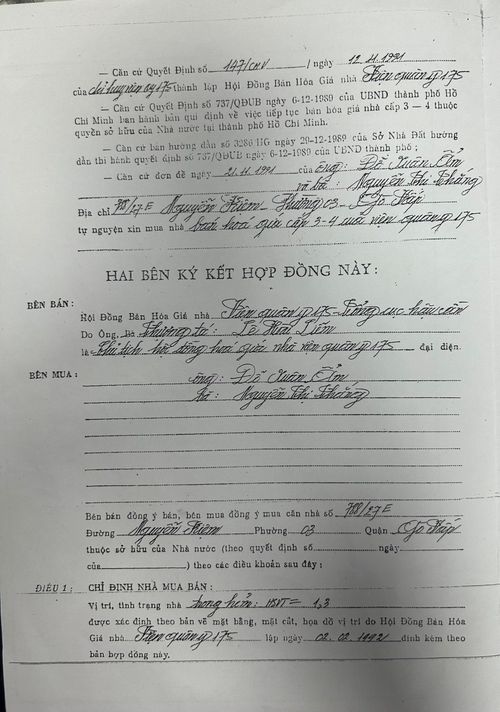 — Căn cứ Quyết Định số 147/CNV / ngày 12.11.1991
của chỉ huy viện qy 175 thành lập Hội Đồng Bán Hóa Giá nhà Viện quân y 175
— Căn cứ Quyết Định số 737/QĐUB ngày 6-12-1989 của UBND thành phố Hồ
Chí Minh ban hành bản qui định về việc tiếp tục bán hóa giá nhà cấp 3 — 4 thuộc
quyền sở hữu của Nhà nước tại thành phố Hồ Chí Minh.
— Căn cứ bản hướng dẫn số 3286 HG ngày 29-12-1989 của Sở Nhà Đất hướng
dẫn thi hành quyết định số 737/QĐUB ngày 6-12-1989 của UBND thành phố ;
— Căn cứ đơn đề ngày 21.11.1991 của ông : Đỗ Xuân Ổm
và bà : Nguyễn Thị Thăng
Địa chỉ 788/27E Nguyễn Kiệm Phường 03 - Gò Vấp
tự nguyện xin mua nhà bán hoá giá cấp 3-4 của viện quân y 175
HAI BÊN KÝ KẾT HỢP ĐỒNG NÀY :
BÊN BÁN :
Hội Đồng Bán Hóa Giá nhà Viện quân y 175 - Tổng cục hậu cần
Do Ông, Bà Thượng tá : Lê
là Chủ tịch hội đồng hoá giá nhà viện quân y 175 đại diện.
BÊN MUA :
Ông : Đỗ Xuân Ổm
Bà : Nguyễn Thị Thăng
Bên bán đồng ý bán, bên mua đồng ý mua căn nhà số 788/27E
Đường Nguyễn Kiệm Phường 03 Quận Gò Vấp
thuộc sở hữu của Nhà nước (theo quyết định số ngày
của ) theo các điều khoản sau đây ;
ĐIỀU 1 : CHỈ ĐỊNH NHÀ MUA BÁN :
Vị trí, tình trạng nhà trong hẻm : = 1,3
được xác định theo bản vẽ mặt bằng, mặt cắt, họa đồ vị trí do Hội Đồng Bán Hóa
Giá nhà Viện quân y 175 lập ngày 02.02.1992 đính kèm theo
bản hợp đồng này.